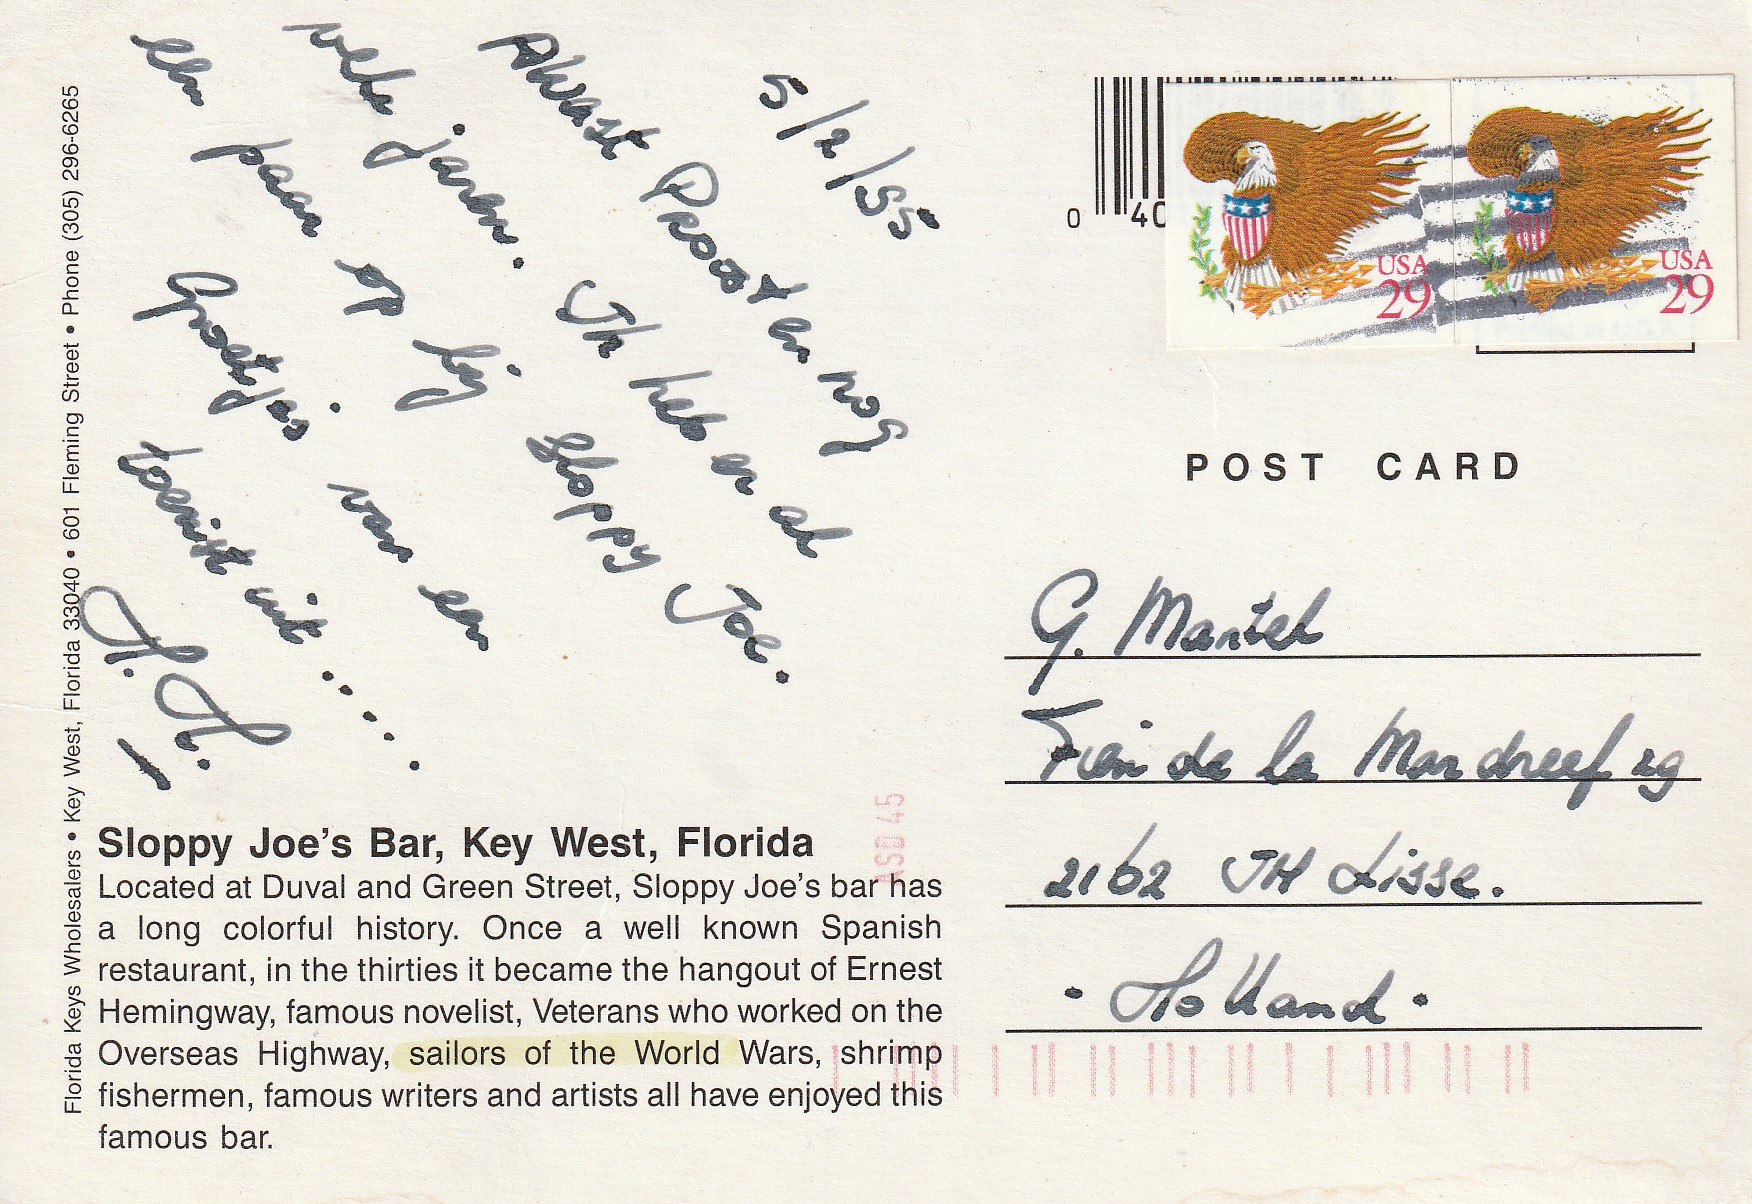 5/2/95
Alvast Proost en nog
vele jaren. Ik heb er al
een paar op bij Sloppy Joe.
Groetjes van een
toerist uit .....
H. H.
Florida Keys Wholesalers • Key West, Florida 33040 • 601 Fleming Street • Phone (305) 296-6265
Sloppy Joe's Bar, Key West, Florida
Located at Duval and Green Street, Sloppy Joe's bar has
a long colorful history. Once a well known Spanish
restaurant, in the thirties it became the hangout of Ernest
Hemingway, famous novelist, Veterans who worked on the
Overseas Highway, sailors of the World Wars, shrimp
fishermen, famous writers and artists all have enjoyed this
famous bar.
ASD 45
0 40
USA
29
USA
29
POST CARD
G. Martel
Fien de la Mar dreef 29
2162 JH Lisse.
• Holland •